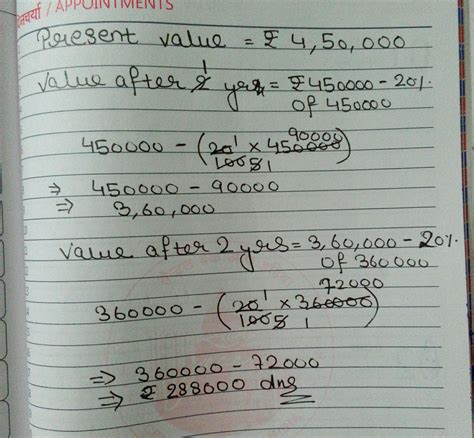 दिनचर्या / APPOINTMENTS
Present value = ₹ 4,50,000
Value after 1 yr = ₹450000 - 20%
of 450000
90000
450000 - (20 1 × 450000)
100 5 1
⇒ 450000 - 90000
⇒ 3,60,000
Value after 2 yrs = 3,60,000 - 20%
of 360000
72000
360000 - (20 1 × 360000)
100 5 1
⇒ 360000 - 72000
⇒ ₹ 288000 Ans